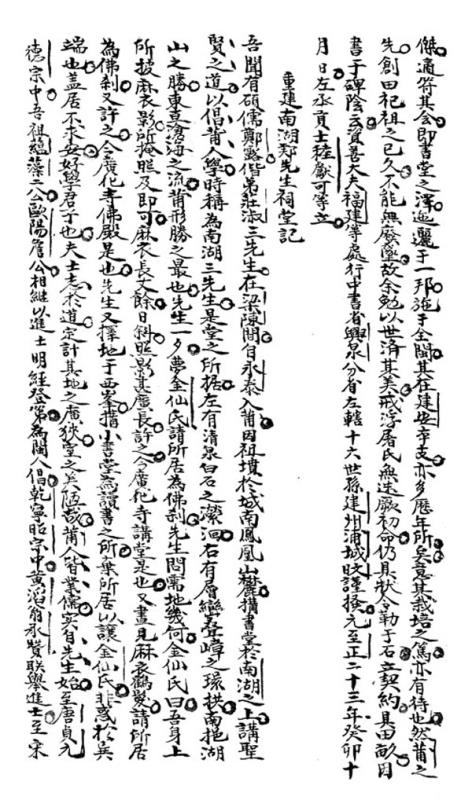 傑適符其会即書堂之澤迤邐于一邦施于全閩其在建安辛支亦多歷年所矣意其栽培之篤亦有待也然莆之
先創田祀祖之已久不能無廢墜故余勉以世済其美戒浮屠氏無迷厥初命仍具状令勒于石立契約具田畝因
書于碑陰云資善大夫福建等處行中書省興泉分省左轄十六世孫建州浦城旼謹撰元至正二十三年癸卯十
月日左丞貢士穜獻可等立
重建南湖郑先生祠堂記
吾聞有碩儒鄭露偕弟莊淑三先生在梁陳間自永泰入莆因祖墳於城南鳳凰山麓搆書堂於南湖之上講聖
賢之道以倡莆人學時稱為南湖三先生是堂之所据左有清泉白石之潔洄右有層巒疊嶂之環拱南挹湖
山之勝東真滄海之流莆形勝之最也先生一夕夢金仙氏請所居為佛刹先生問需地幾何金仙氏曰吾身上
所披麻衣影所掩照及即可麻衣長丈餘日斜照影其廣長許之今廣化寺講堂是也又晝見麻衣鶴髮請所居
為佛刹又許之今廣化寺佛殿是也先生又擇地于西峯搆小書堂為讀書之所棄所居以讓金仙氏非惑於異
端也盖居不求安好學君子也夫士志於道定計其地之廣狭堂之美恆哉莆人皆業儒实自先生始至唐貞元
德宗中吾祖藻二公歐陽詹公相继以進士明經登第為閩人倡乾寧昭宗中黄滔翁承贊联舉進士至宋